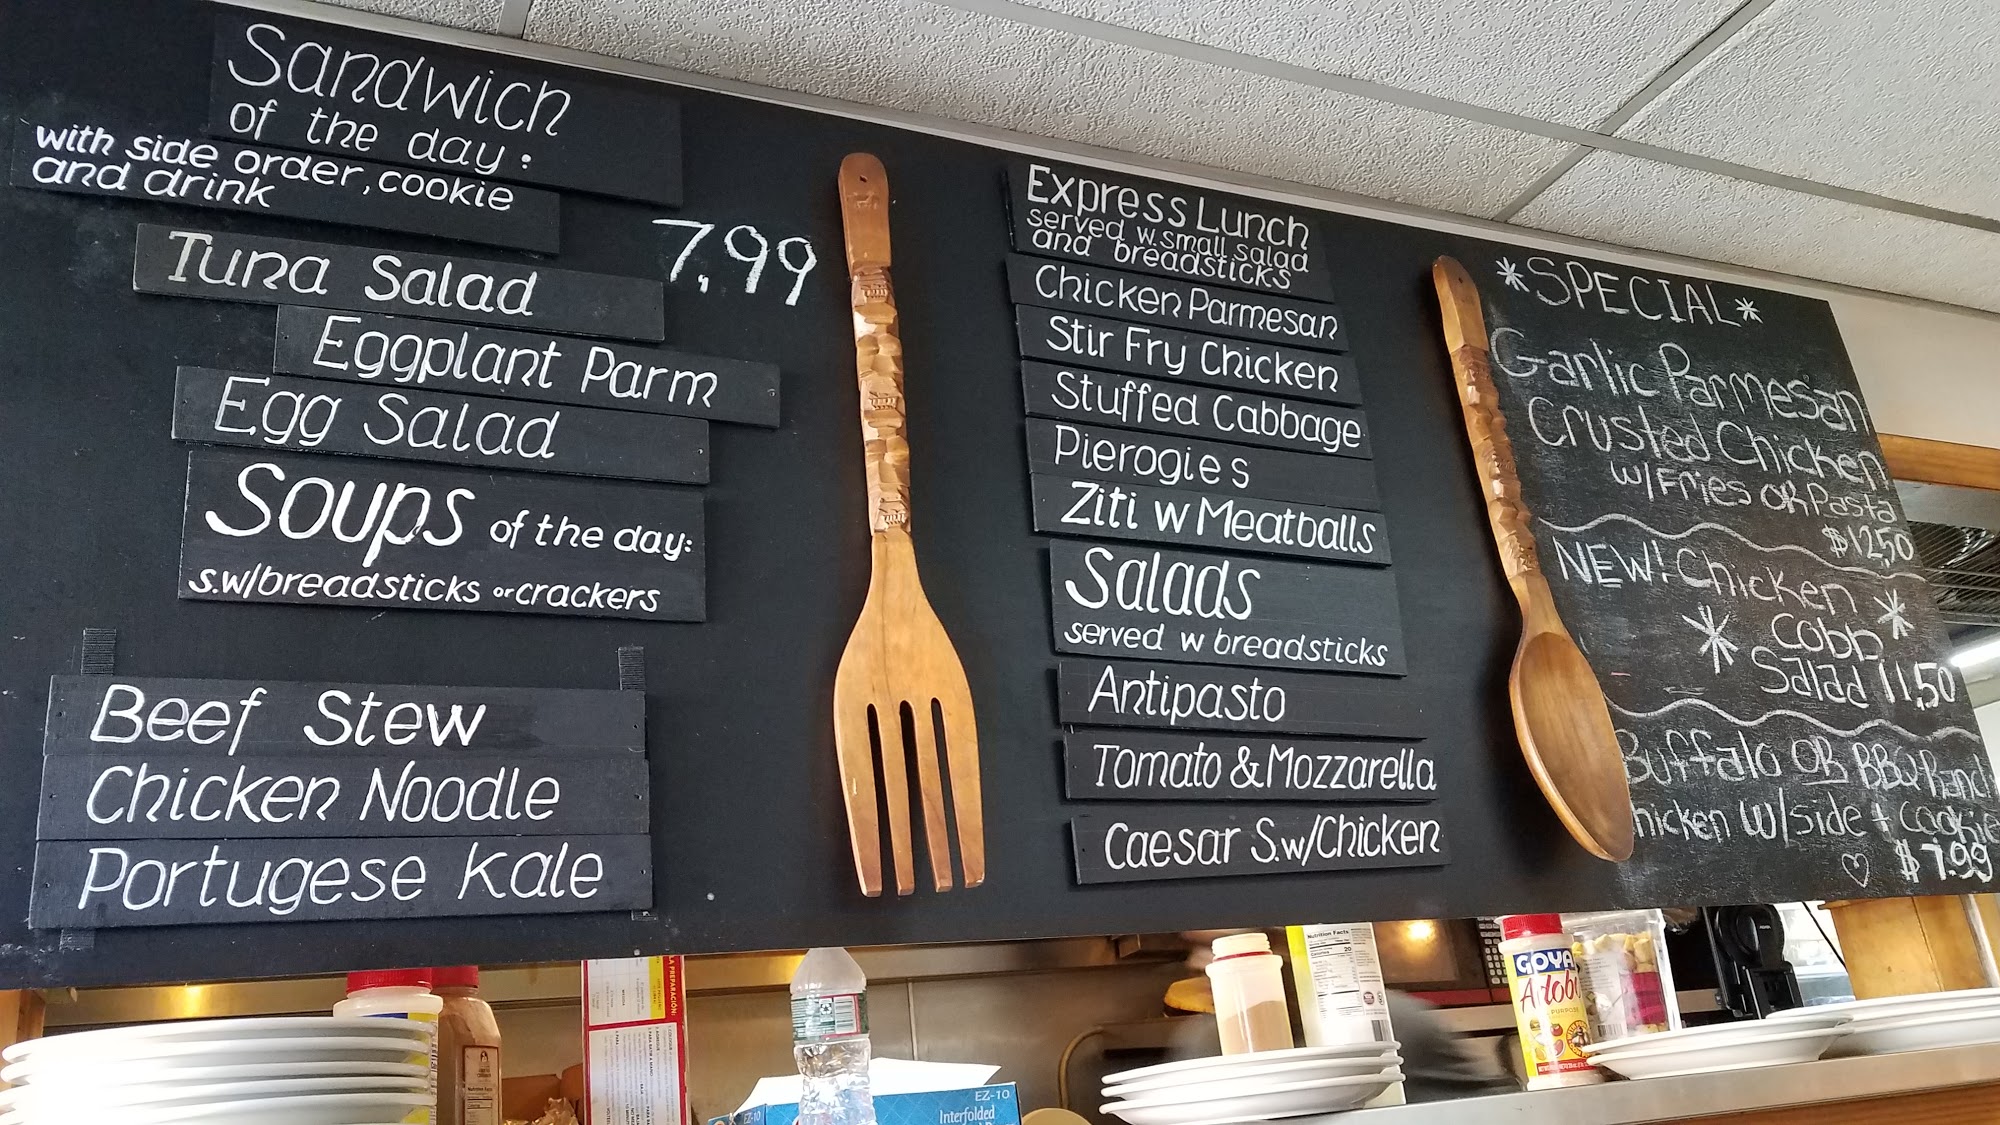 Sandwich
of the day:
with side order, cookie
and drink
7.99
Tuna Salad
Eggplant Parm
Egg Salad
Soups of the day:
s.w/breadsticks or crackers
Beef Stew
Chicken Noodle
Portugese Kale
Express Lunch
served w. small salad
and breadsticks
Chicken Parmesan
Stir Fry Chicken
Stuffed Cabbage
Pierogies
Ziti w Meatballs
Salads
served w breadsticks
Antipasto
Tomato & Mozzarella
Caesar S.w/Chicken
*SPECIAL*
Garlic Parmesan
Crusted Chicken
w/Fries OR Pasta
$12.50
NEW! Chicken
Cobb
Salad 11.50
Buffalo OR BBQ Ranch
hicken w/side + cookie
$7.99
LA PREPARACIÓN:
Nutrition Facts
GOYA
Adobo
EZ-10
EZ-10
Interfolded